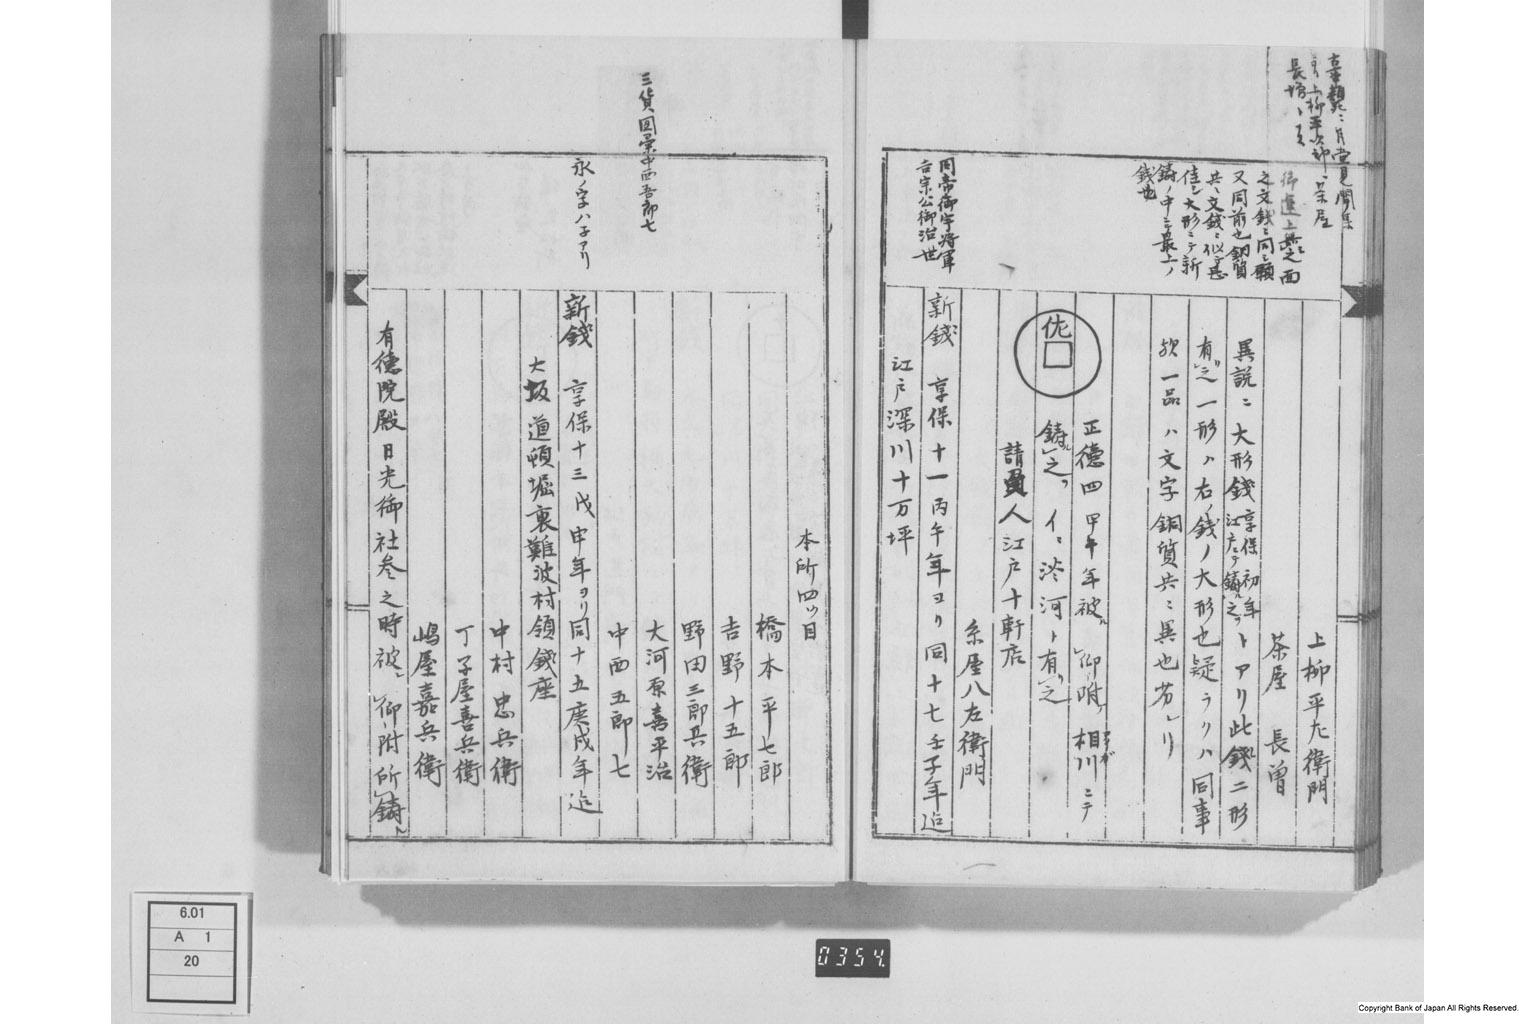 上柳平左衛門
茶屋 長曽
異説ニ大形銭享保初年
江戸ニテ鋳之トアリ此銭二形
有之一形ハ右ノ銭ノ大形也疑ラクハ同事
欤一品ハ文字銅質共ニ異也
正徳四甲午年被仰附相川ニテ
鋳之イニ澁河ト有之
佐
請負人江戸十軒店
糸屋八左衛門
同帝御宇将軍
吉宗公御治世
新銭 享保十一丙午年ヨリ同十七壬子年迄
江戸深川十万坪
御運上無之面
之文銭ニ同シ願
又同前也銅質
共ニ文銭ニ似テ甚
佳シ大形ニテ新
鋳ノ中ニテ最上ノ
銭也
本所四ツ目
橋本平七郎
吉野十五郎
野田三郎兵衛
大河原喜平治
中西五郎七
三貨図彙中西吾郎七
永ノ字ハ子アリ
新銭 享保十三戊申年ヨリ同十五庚戌年迄
大坂道頓堀裏難波村領銭座
中村忠兵衛
丁子屋喜兵衛
嶋屋嘉兵衛
有徳院殿日光御社参之時被仰附所鋳
6.01
A 1
20
0354
Copyright Bank of Japan All Rights Reserved.